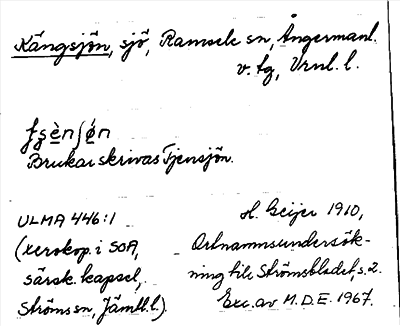 Kängsjön, sjö, Ramsele sn, Ångermanl.
v. tg, Vrnl. l.
Brukar skrivas Tjensjön.
ULMA 446:1
(xerokop. i SOA,
särsk. kapsel,
Ströms sn, Jämtl. l.)
H. Geijer 1910,
Ortnamnsundersök-
ning till Strömsbladet, s. 2.
Exc. av M.D.E. 1967.